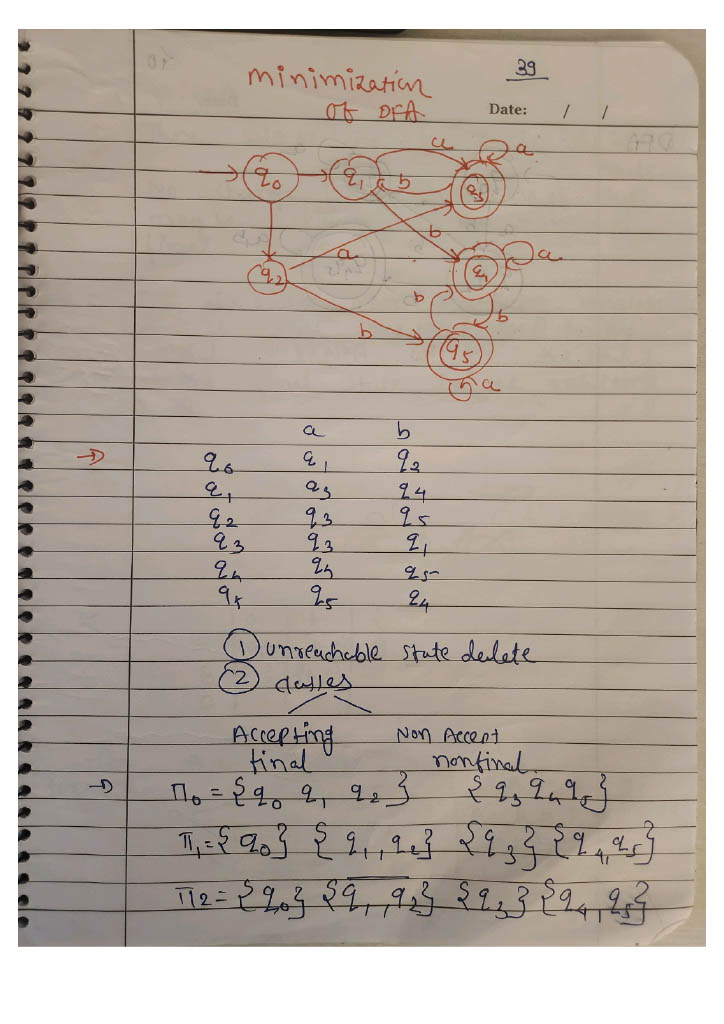 39
minimization
of DFA
Date: / /
a a
q0 q1 b q3
b
a
q2 q4 a
b b
b
q5
a
a b
→ q0 q1 q2
q1 q3 q4
q2 q3 q5
q3 q3 q1
q4 q4 q5
q5 q5 q4
① unreachable state delete
② classes
Accepting Non Accept
final nonfinal.
→ Π0 = {q0 q1 q2} {q3 q4 q5}
Π1 = {q0} {q1, q2} {q3} {q4, q5}
Π2 = {q0} {q1, q2} {q3} {q4, q5}